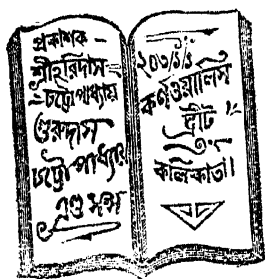 প্রকাশক -
শ্রীহরিদাস
চট্টোপাধ্যায়
গুরুদাস
চট্টোপাধ্যায়
এণ্ড সন্স
২০৩/১/১
কর্ণওয়ালিস
ষ্ট্রীট
কলিকাতা।।